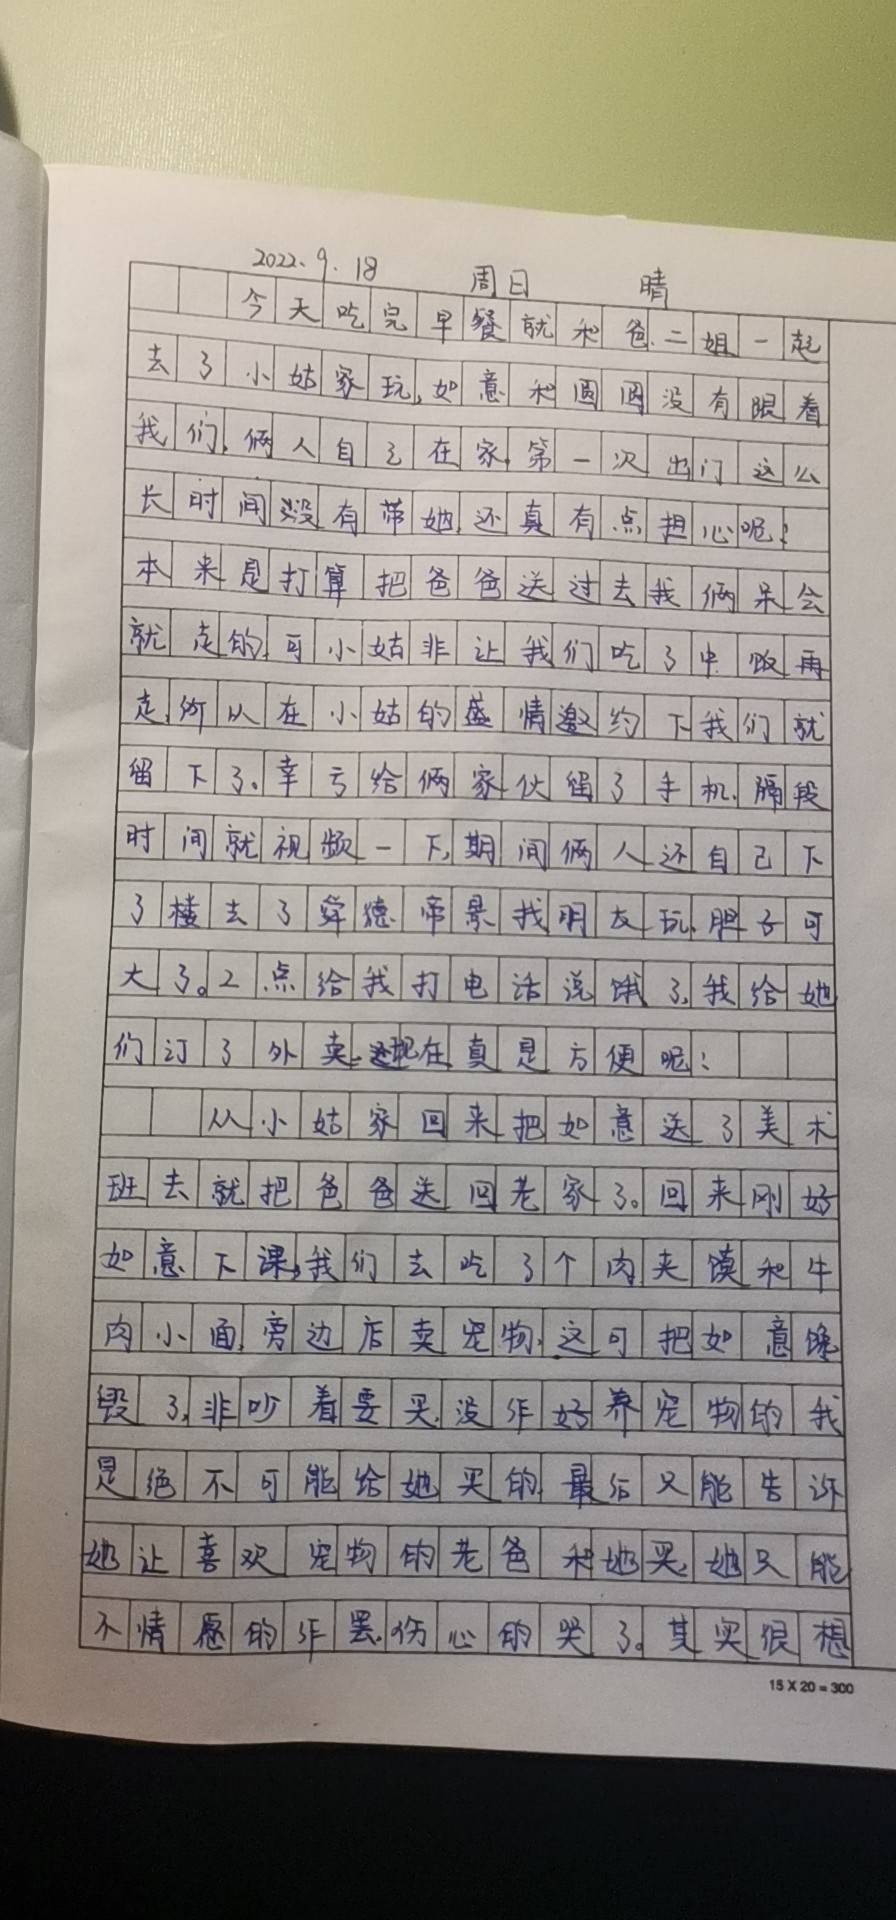 2022.9.18 周日 晴
今天吃完早餐就和爸、二姐一起
去了小姑家玩,如意和圆圆没有跟着
我们,俩人自己在家,第一次出门这么
长时间没有带她,还真有点担心呢!
本来是打算把爸爸送过去我俩呆会
就走的,可小姑非让我们吃了中饭再
走,所以在小姑的盛情邀约下我们就
留下了。幸亏给俩家伙留了手机,隔段
时间就视频一下,期间俩人还自己下
了楼去了舜德帝景找朋友玩,胆子可
大了。2点给我打电话说饿了,我给她
们订了外卖,现在真是方便呢!
从小姑家回来把如意送了美术
班去就把爸爸送回老家了。回来刚好
如意下课,我们去吃了个肉夹馍和牛
肉小面,旁边店卖宠物,这可把如意馋
毁了,非吵着要买,没作好养宠物的我
是绝不可能给她买的,最后只能告诉
她让喜欢宠物的老爸和她买,她只能
不情愿的作罢,伤心的哭了。其实很想
15 X 20 = 300